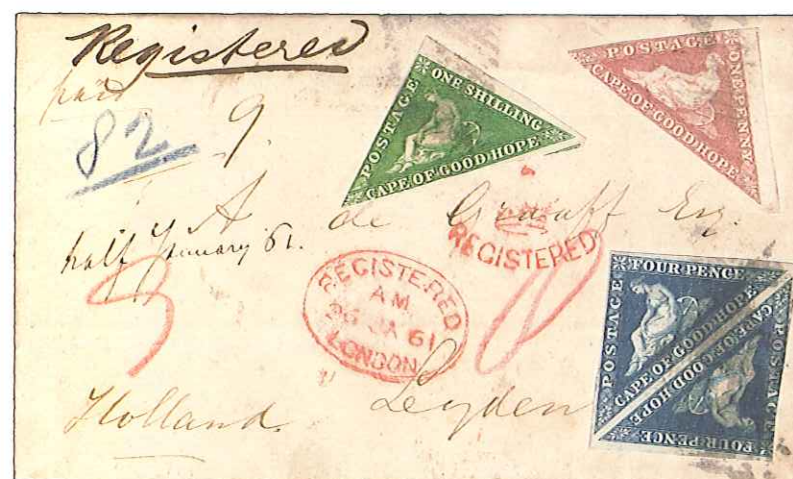 Registered
paid
82
9.
POSTAGE
ONE SHILLING
CAPE OF GOOD HOPE
POSTAGE
ONE PENNY
CAPE OF GOOD HOPE
A. de Graaff Esq.
half January 61.
REGISTERED
REGISTERED
AM
JA 61
LONDON
3
FOUR PENCE
POSTAGE
CAPE OF GOOD HOPE
CAPE OF GOOD HOPE
POSTAGE
FOUR PENCE
Leyden
Holland